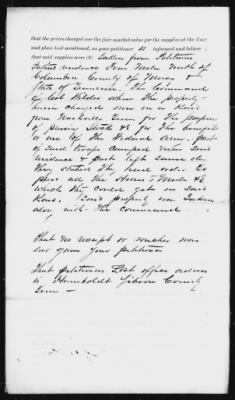 that the prices charged are the fair market value for the supplies at the time
and place last mentioned, as your petitioner is informed and believes;
that said supplies were (8) Taken from Petitioners
Father's residence Four Miles North of
Columbia County of Maury &
State of Tennessee. The Command
of Col Wilder when the property
herein charged was on a Raid
from Nashville Tenn for the purpose
of pressing Stock &c for the benefit
& use of the Federal Army. part
of said troops camped near said
residence & part left same day
They stated they had orders to
press all the Horses & Mules &c
which they could get on said
Raid. Said property was taken
along with the command.
That no receipt or voucher was
ever given your petitioner
That petitioners Post office address
is Humboldt Gibson County
Tenn -